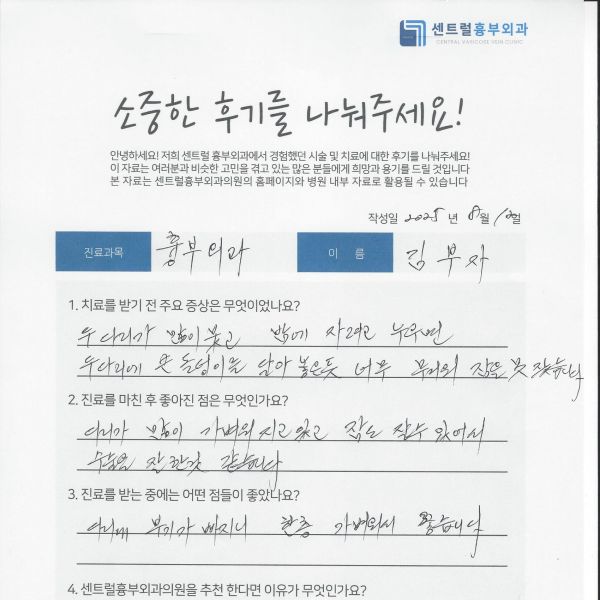 센트럴흉부외과
CENTRAL VARICOSE VEIN CLINIC
소중한 후기를 나눠주세요!
안녕하세요! 저희 센트럴 흉부외과에서 경험했던 시술 및 치료에 대한 후기를 나눠주세요!
이 자료는 여러분과 비슷한 고민을 겪고 있는 많은 분들에게 희망과 용기를 드릴 것입니다
본 자료는 센트럴흉부외과의원의 홈페이지와 병원 내부 자료로 활용될 수 있습니다
작성일 2025 년 8월 일
진료과목 흉부외과 이 름 김부자
1. 치료를 받기 전 주요 증상은 무엇이었나요?
두다리가 많이 붓고 밤에 자려고 누우면
두다리에 큰 돌덩이를 달아 놓은듯 너무 무거워 잠을 못 잤습니다
2. 진료를 마친 후 좋아진 점은 무엇인가요?
다리가 많이 가벼워 지고 있고 잠도 잘수 있어서
수술을 잘 한것 같습니다
3. 진료를 받는 중에는 어떤 점들이 좋았나요?
다리에 붓기가 빠지니 한층 가벼워서 좋습니다
4. 센트럴흉부외과의원을 추천 한다면 이유가 무엇인가요?